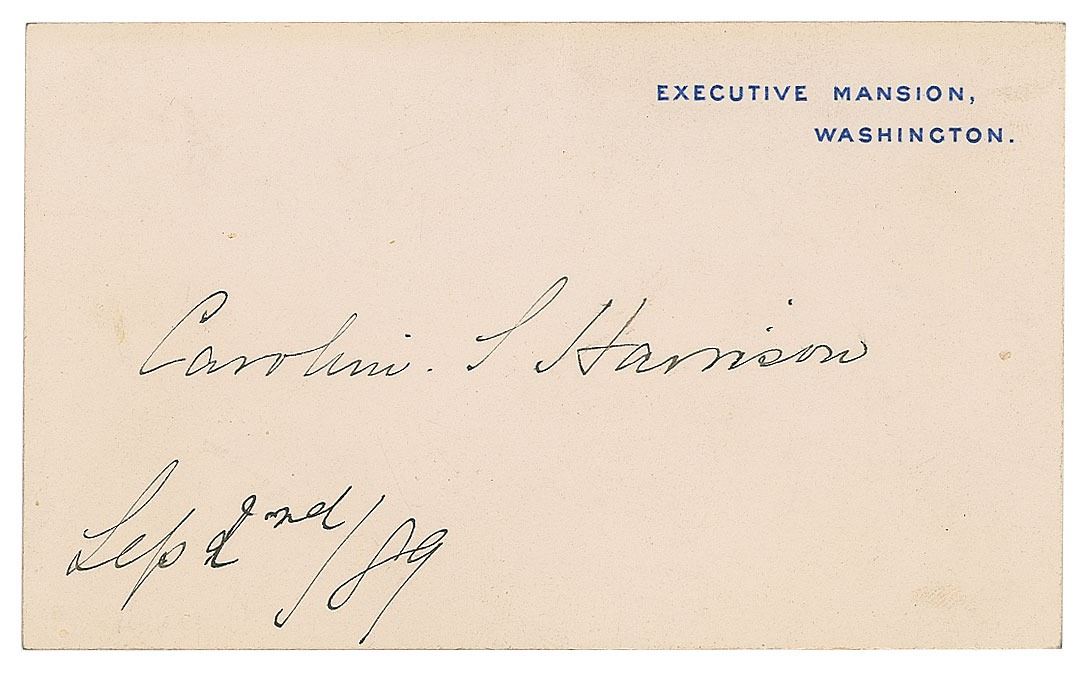 EXECUTIVE MANSION,
WASHINGTON.
Caroline. S Harrison
Sep 2nd/89